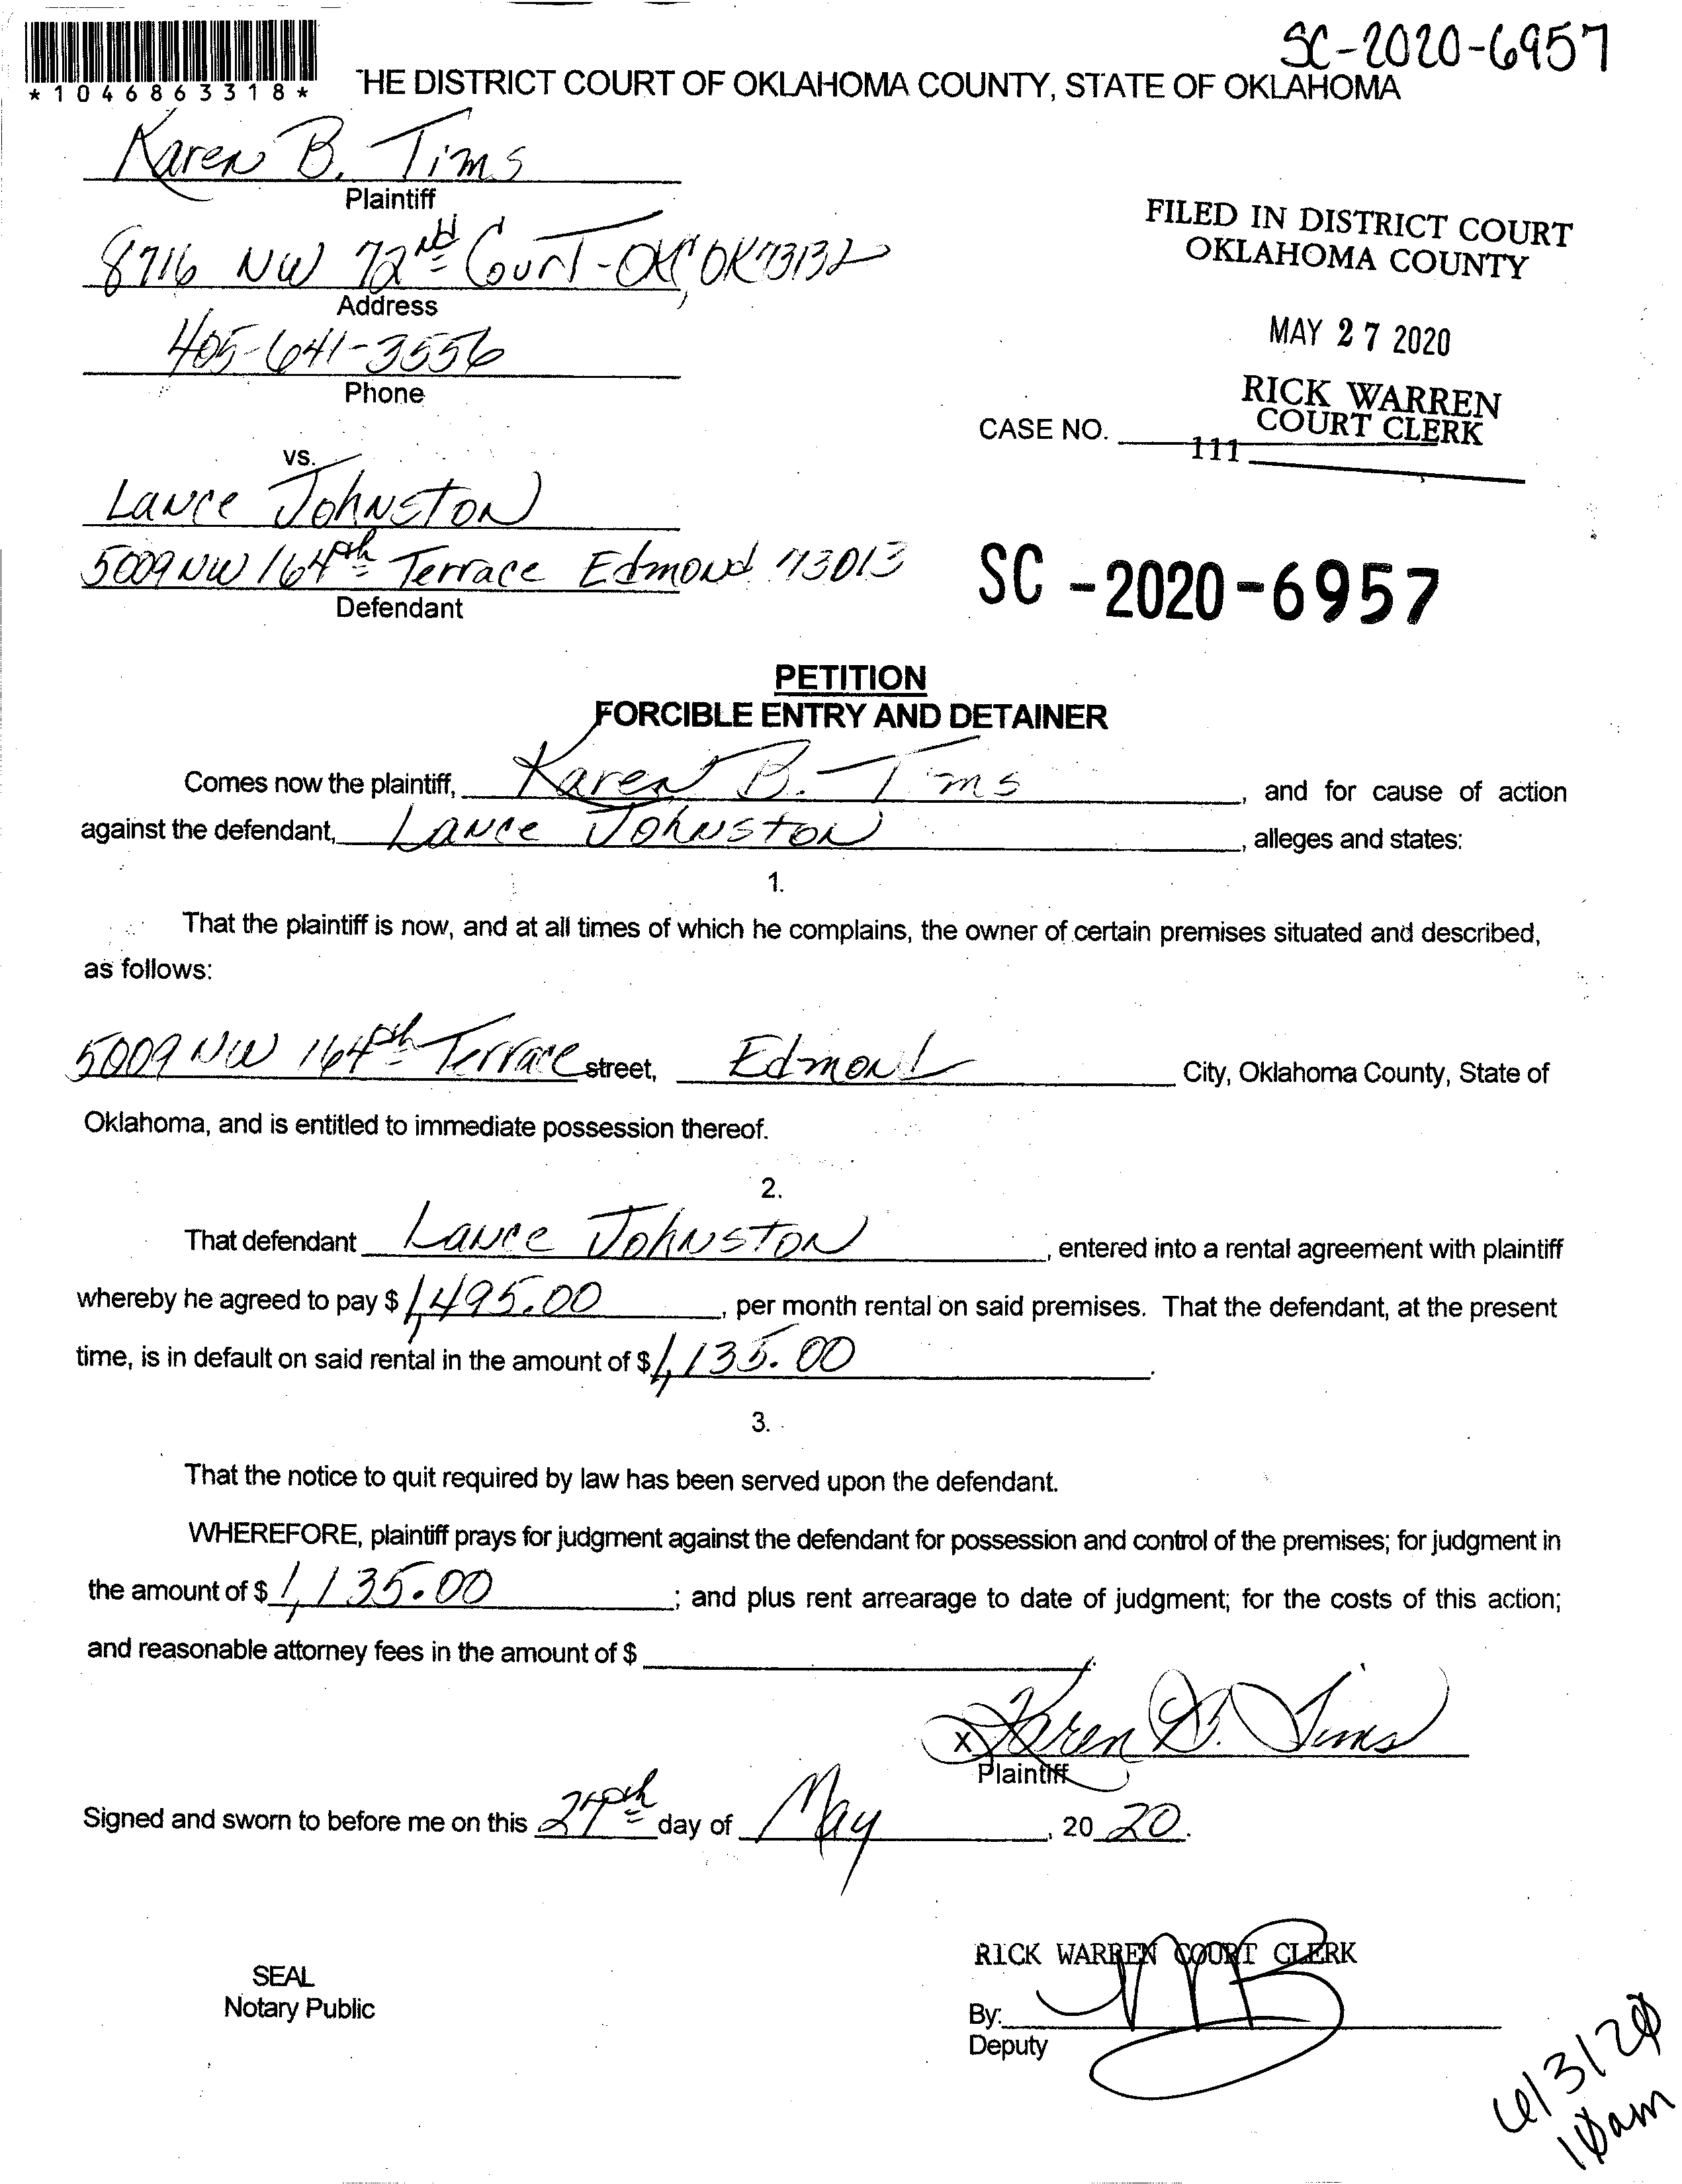 SC-2020-6957
*1046863318*
THE DISTRICT COURT OF OKLAHOMA COUNTY, STATE OF OKLAHOMA
Karen B. Tims
Plaintiff
8716 NW 72nd Court - OKC, OK 73132
Address
405-641-3556
Phone
FILED IN DISTRICT COURT
OKLAHOMA COUNTY
MAY 27 2020
RICK WARREN
COURT CLERK
CASE NO.
111
vs.
Lance Johnston
5009 NW 164th Terrace Edmond 73013
Defendant
SC -2020-6957
PETITION
FORCIBLE ENTRY AND DETAINER
Comes now the plaintiff, Karen B. Tims, and for cause of action
against the defendant, Lance Johnston, alleges and states:
1.
That the plaintiff is now, and at all times of which he complains, the owner of certain premises situated and described,
as follows:
5009 NW 164th Terrace street, Edmond City, Oklahoma County, State of
Oklahoma, and is entitled to immediate possession thereof.
2.
That defendant Lance Johnston, entered into a rental agreement with plaintiff
whereby he agreed to pay $ 1,495.00, per month rental on said premises. That the defendant, at the present
time, is in default on said rental in the amount of $ 1,135.00.
3.
That the notice to quit required by law has been served upon the defendant.
WHEREFORE, plaintiff prays for judgment against the defendant for possession and control of the premises; for judgment in
the amount of $ 1,135.00; and plus rent arrearage to date of judgment; for the costs of this action;
and reasonable attorney fees in the amount of $
x Karen B. Tims
Plaintiff
Signed and sworn to before me on this 27th day of May, 20 20.
RICK WARREN COURT CLERK
SEAL
Notary Public
By:
Deputy
6/3/20
10am